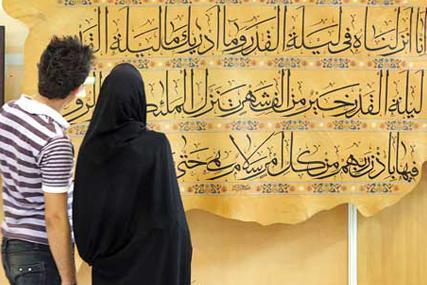 انا انزلناه فى ليلة القدر وما ادريك ما ليلة القد
ليلة القدر خير من الف شهر تنزل الملئكة و الرو
فيها باذن ربهم من كل امر سلام هى حتى